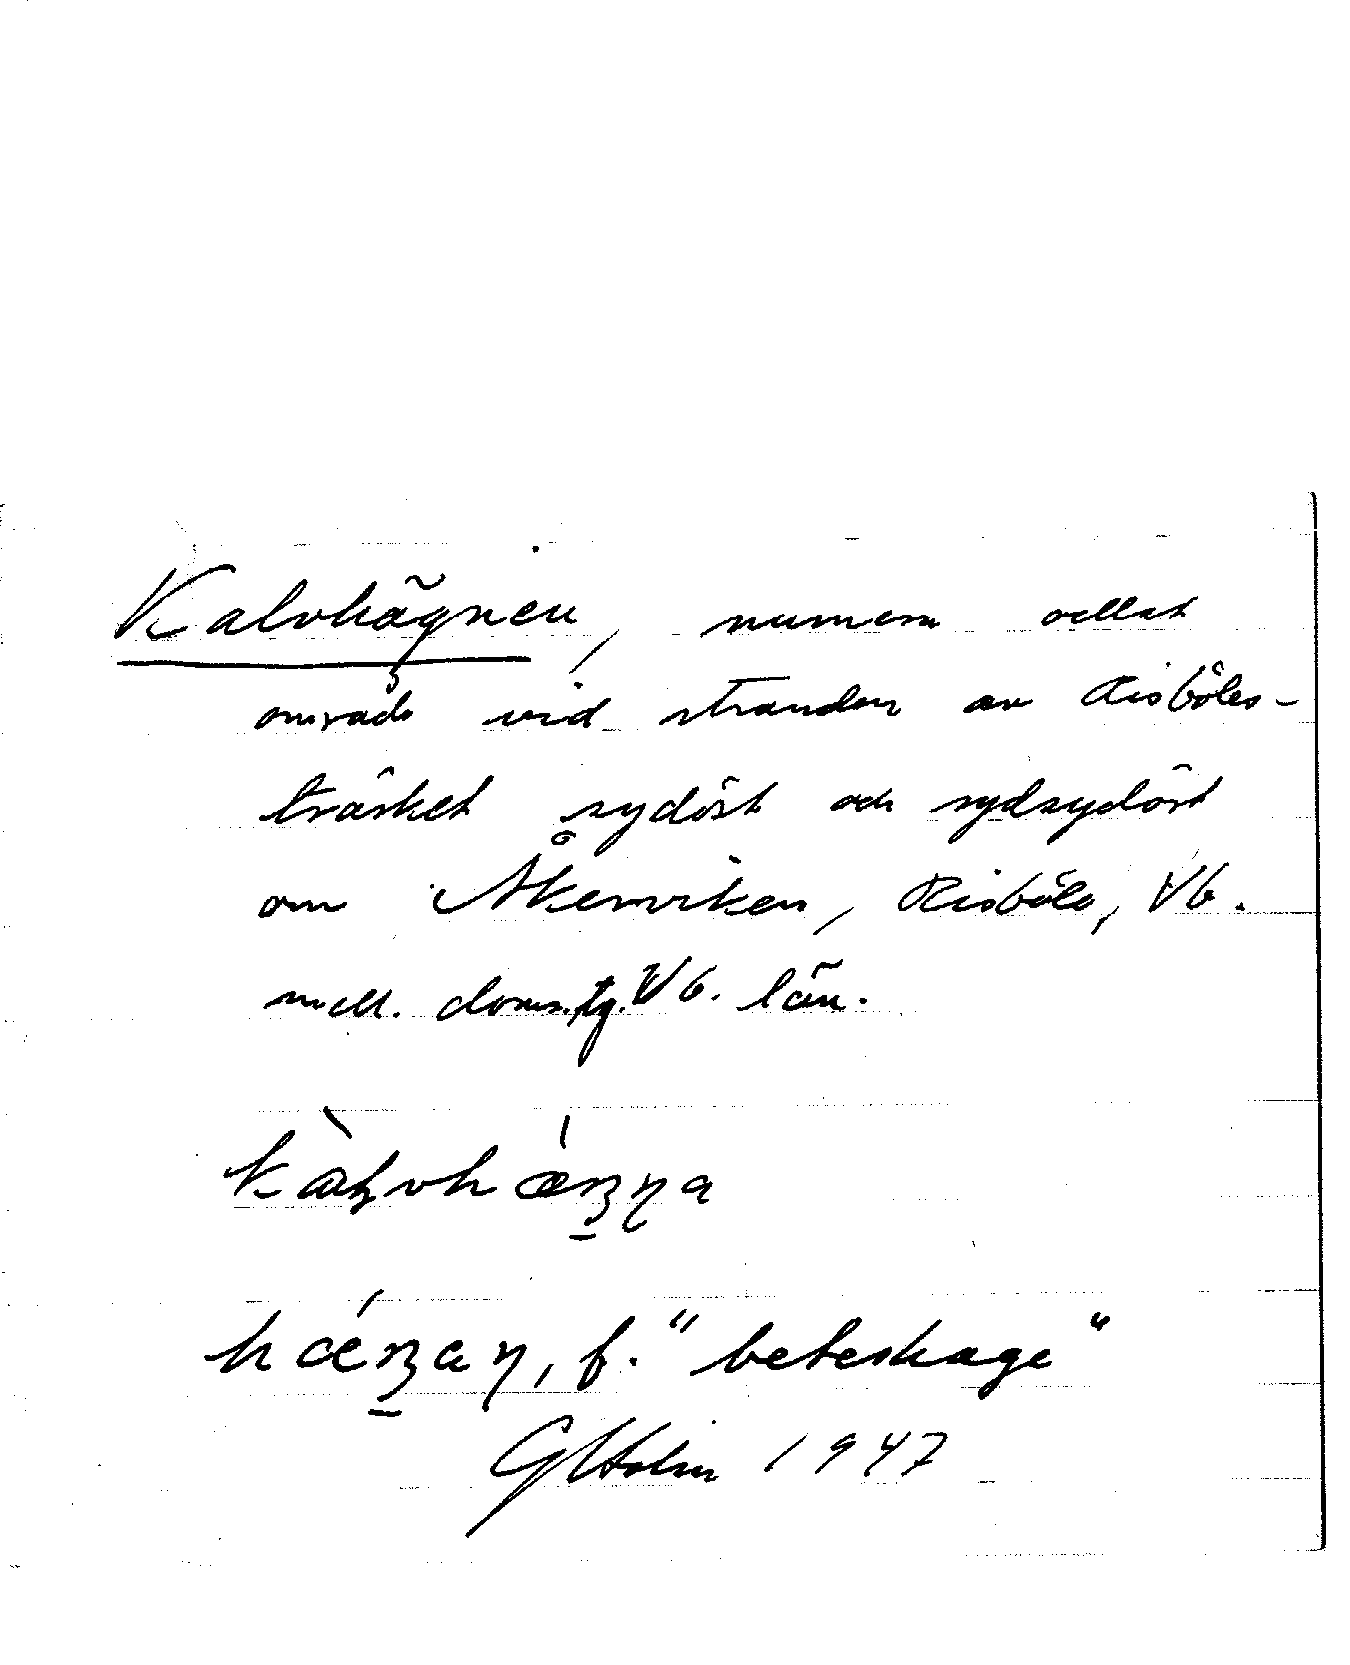 Kalvhägnen, numera odlat
område vid stranden av Risböles-
träsket sydöst och sydsydöst
om Åkerviken, Risböle, Vb.
mell. doms.tg. Vb. län.
f. "beteshage"
G Holm 1947